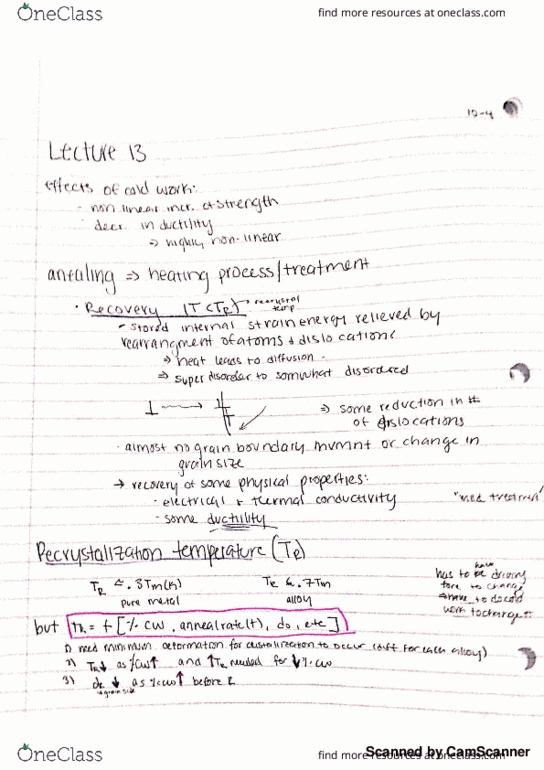 OneClass
find more resources at oneclass.com
10-4
Lecture 13
effects of cold work:
- non linear incr. of strength
- decr. in ductility
⇒ highly non-linear
annealing ⇒ heating process/treatment
• Recovery (T<TR) → recrystal temp
- stored internal strain energy relieved by
rearrangment of atoms & dislocations
⇒ heat leads to diffusion
⇒ super disordar to somwhat disordered
⇒ some reduction in #
of dislocations
• almost no grain boundary mvmnt or change in
grain size
→ recovery of some physical properties:
• electrical & thermal conductivity
- some ductility
"med treatment"
Recrystalization temperature (TR)
TR ≈ .3Tm(K)
pure metal
TR ≈ .7Tm
alloy
has to be driving
force to change
have to do cold
work to change it
but TR = f [% CW, anneal rate(t), do, etc]
1) need minimum deformation for crystallization to occur (diff for each alloy)
2) TR↓ as %CW↑ and ↑TR needed for ↓% CW
3) dR ↓ as %CW↑ before R
grain size
OneClass
find more resources at oneclass.com
Scanned by CamScanner